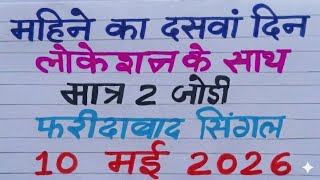 महिने का दसवां दिन
लोकेशन के साथ
मात्र 2 जोडी
फरीदाबाद सिंगल
10 मई 2026